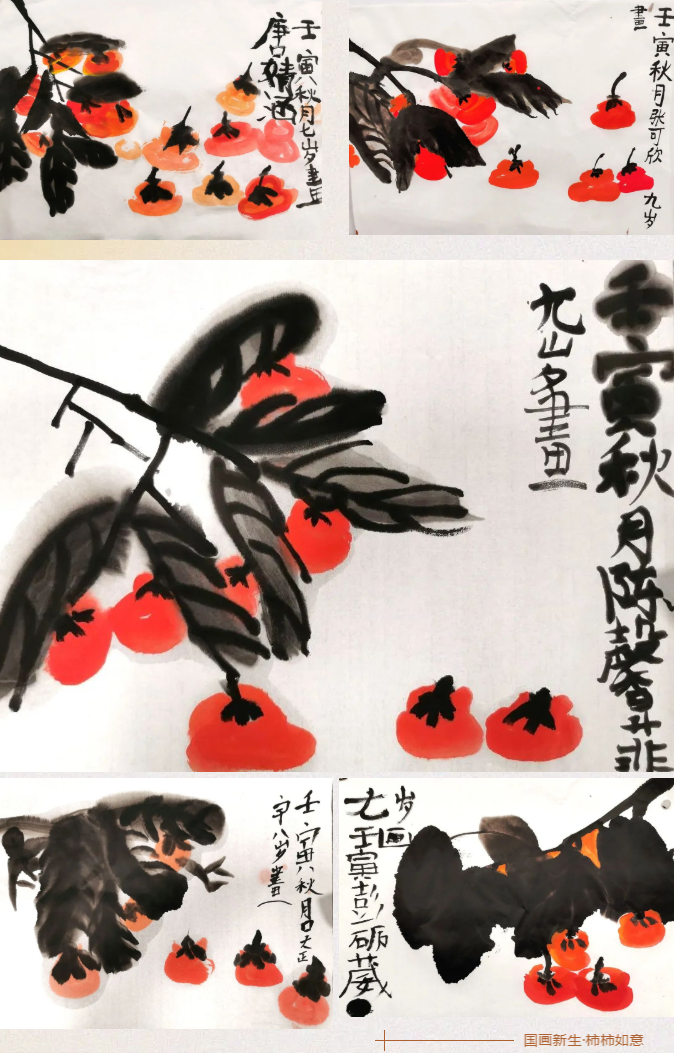 壬寅秋月七岁畫
唐
壬寅秋月张可欣九岁
畫
壬寅秋月陈馨菲
九岁畫
壬寅秋月
八岁畫
七岁画
壬寅彭砺葳
国画新生·柿柿如意